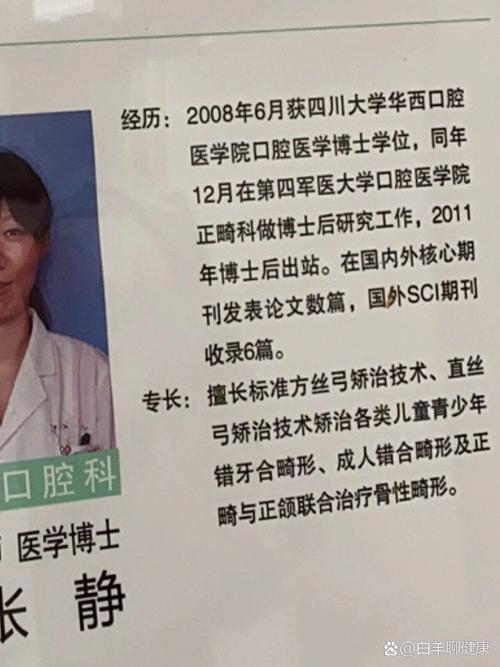 经历：2008年6月获四川大学华西口腔
医学院口腔医学博士学位，同年
12月在第四军医大学口腔医学院
正畸科做博士后研究工作，2011
年博士后出站。在国内外核心期
刊发表论文数篇，国外SCI期刊
收录6篇。
专长：擅长标准方丝弓矫治技术、直丝
弓矫治技术矫治各类儿童青少年
错牙合畸形、成人错合畸形及正
畸与正颌联合治疗骨性畸形。
口腔科
医学博士
张静
白羊聊健康